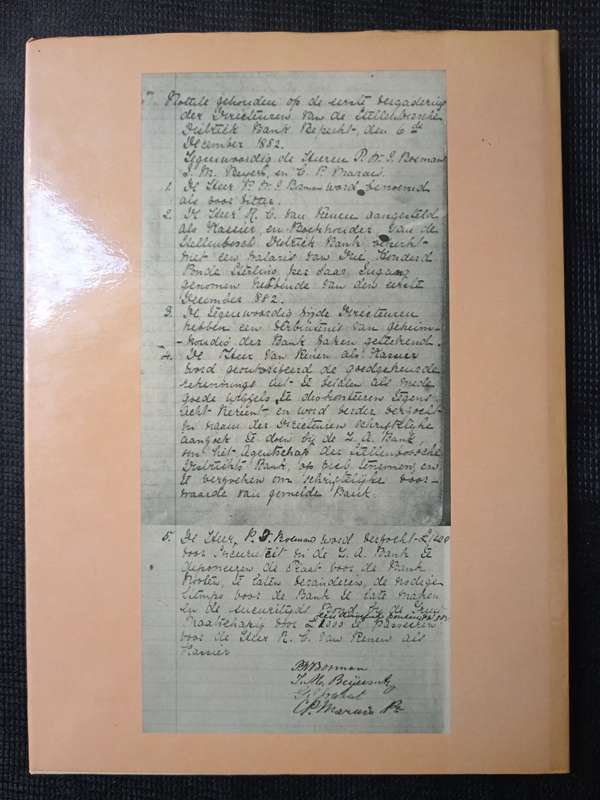 Notule gehouden op de eerste vergadering
der Directeuren van de Stellenbossche
Distrikt Bank Beperkt, den 6de
December 1882.
Tegenwoordig de Heeren P. W. J. Bosman
J. M. Beyers, en C. P. Marais.
1. De Heer P. W. J. Bosman word benoemd
als voor zitter.
2. De Heer R. C. van Renen aangesteld
als Kassier, en Boekhouder van de
Stellenbosch Distriek Bank, beperkt
met een salaris van Honderd
Ponde Sterling per Jaar,
genomen hebbende van den eerste
December 1882.
3. De tegenwoordig zynde Directeuren
hebben een verbintenis van geheim-
-houding der Bank zaken geteekend.
4. De Heer van Renen als Kassier
word geoutoriseerd de goedgekeurde
rekenings uit te betalen als mede
goede wissels te diskonteren tegens
acht Percent en word verder verzocht
in naam der Directeuren schriftelyke
aanzoek te doen by de Z. A. Bank,
om het Agentschap der Stellenbossche
Distrikts Bank, op zich te nemen, en
te verzoeken om schriftelyke voor-
waarde van gemelde Bank.
5. De Heer P. J. Bosman word verzocht
voor Securiteit in de Z. A. Bank te
deponeren de Plaat voor de Bank
Noten te laten veranderen, de nodige
Stemps voor de Bank te late maken
en de securityds Bond by de
Maatschappy voor £1000 te passeeren
voor de Heer R. C. van Renen als
Kassier
PWBosman
J. M. Beyers
CP. Marais